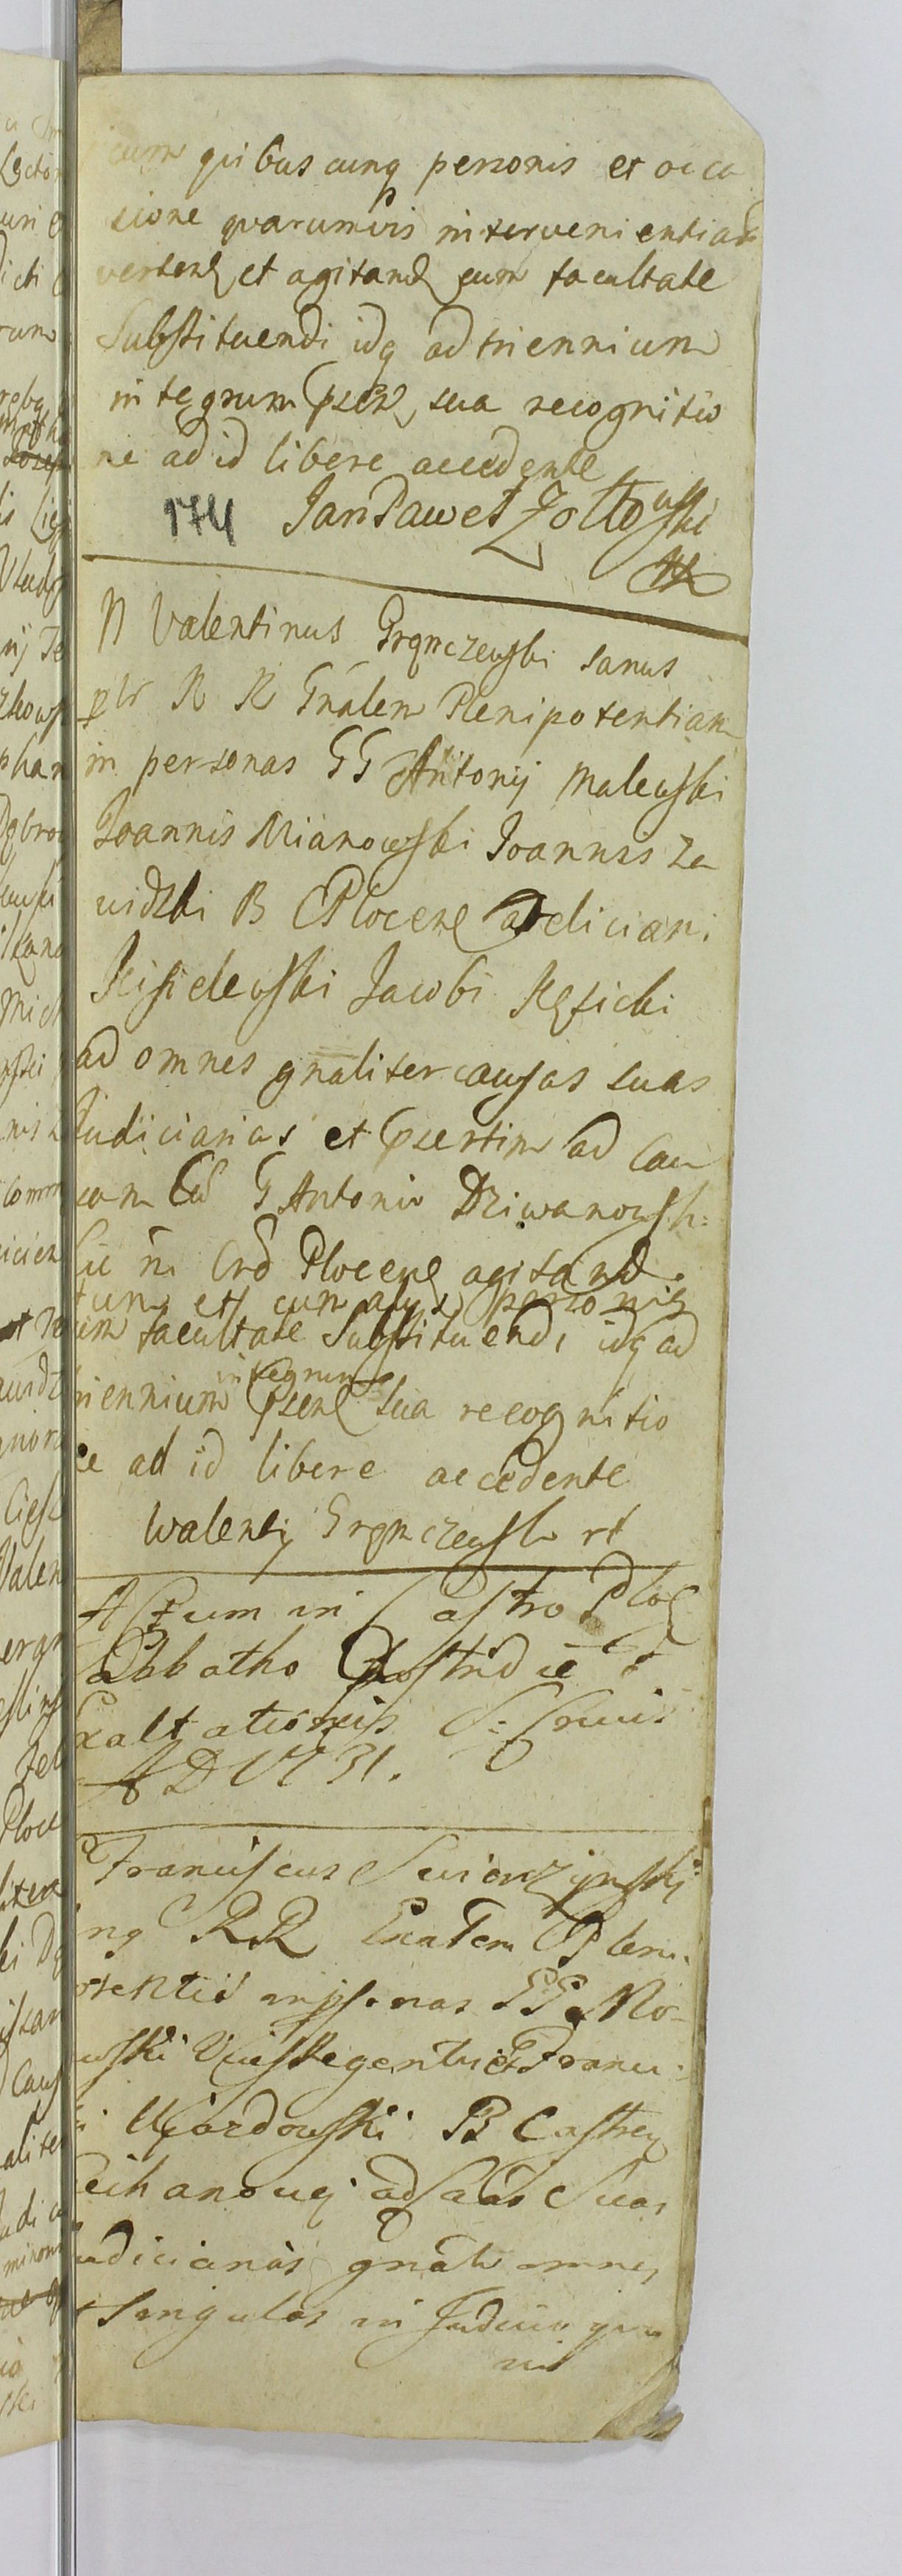 cum quibus cunq personis et occa
sione quarumvis intervenientiarum
vertend et agitand cum facultate
Substituendi idq ad triennium
integrum psen sua recognitio
ne ad id libere accedente
174 Jan Paweł Zołtowski
N Valentinus Grqnczewski sanus
plr R R Gnalem Plenipotentiam
in personas GG Antonij Malewski
Joannis Mianowski Joannis Za
widzki B C Plocen Feliciani
Kisielewski Jacobi
ad omnes gnaliter causas suas
Judiciarias et psertim ad Cau
sam G Antonio Dziwanowsk:
in Crd Plocen agitand
tum et cum alijs personis
cum facultate Substituendi idq ad
integrum
riennium psen sua recognitio
ne ad id libere accedente
Walenty Grqnczewski
Actum in Castro Ploc
Sabbatho Postridie
Exaltationis S: Crucis
A D 1731.
Franciscus
ng RR Gnalem Pleni
potentia in psonas GG No-
wski Vicesregentis et Franci
Ujazdowski B Castren
Ciechanovien ad Cas Suas
udiciarias gnalr omnes
t Singulas in Judicio quo
vis